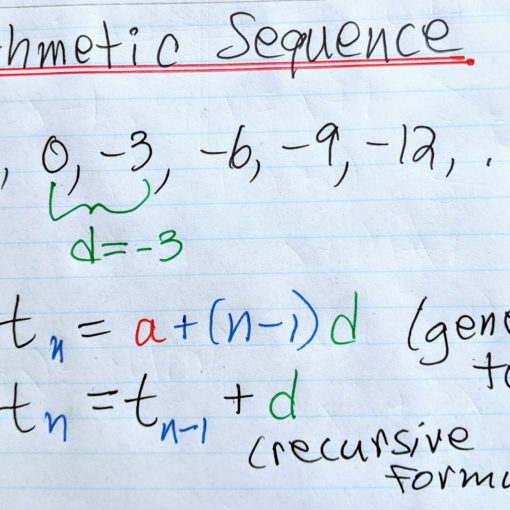 hmetic Sequence
, 0, -3, -6, -9, -12, .
d = -3
tn = a + (n-1) d (gene
to
tn = tn-1 + d
(recursive
formu